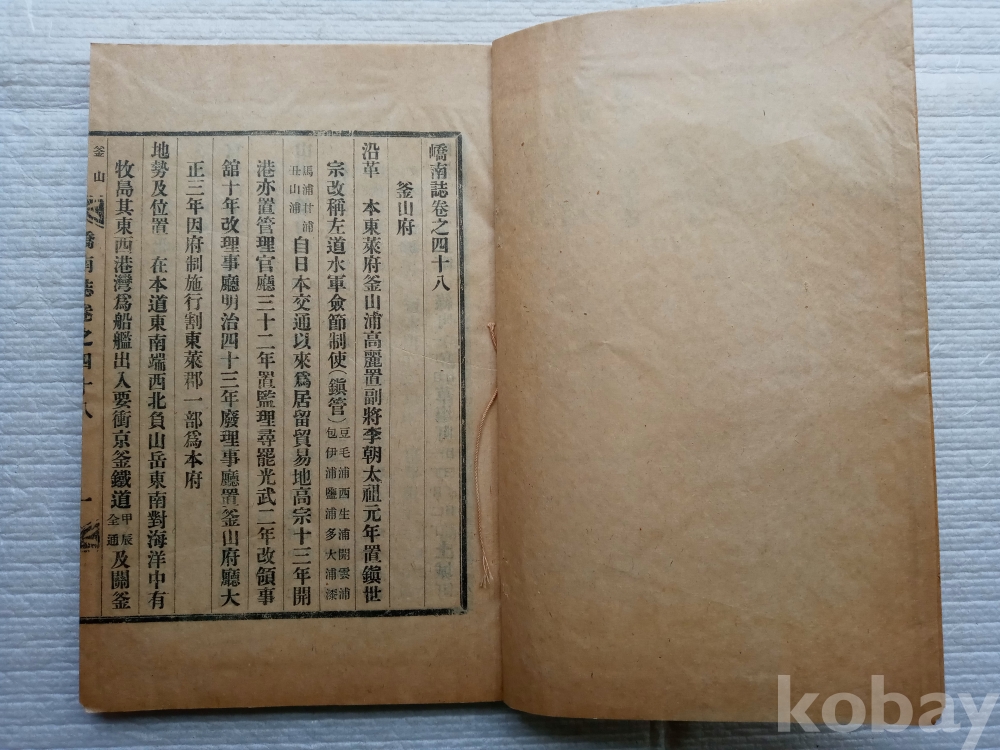 嶠南誌卷之四十八
釜山府
沿革 本東萊府釜山浦高麗置副將李朝太祖元年置鎭世
宗改稱左道水軍僉節制使(鎭管)豆毛浦西生浦開雲浦
包伊浦鹽浦多大浦漆
馬浦甘浦
丑山浦
自日本交通以來爲居留貿易地高宗十三年開
港亦置管理官廳三十二年置監理尋罷光武二年改領事
舘十年改理事廳明治四十三年廢理事廳置釜山府廳大
正三年因府制施行割東萊郡一部爲本府
地勢及位置 在本道東南端西北負山岳東南對海洋中有
牧島其東西港灣爲船艦出入要衝京釜鐵道甲辰
全通
及關釜
釜山 嶠南誌卷之四十八 一
kobay